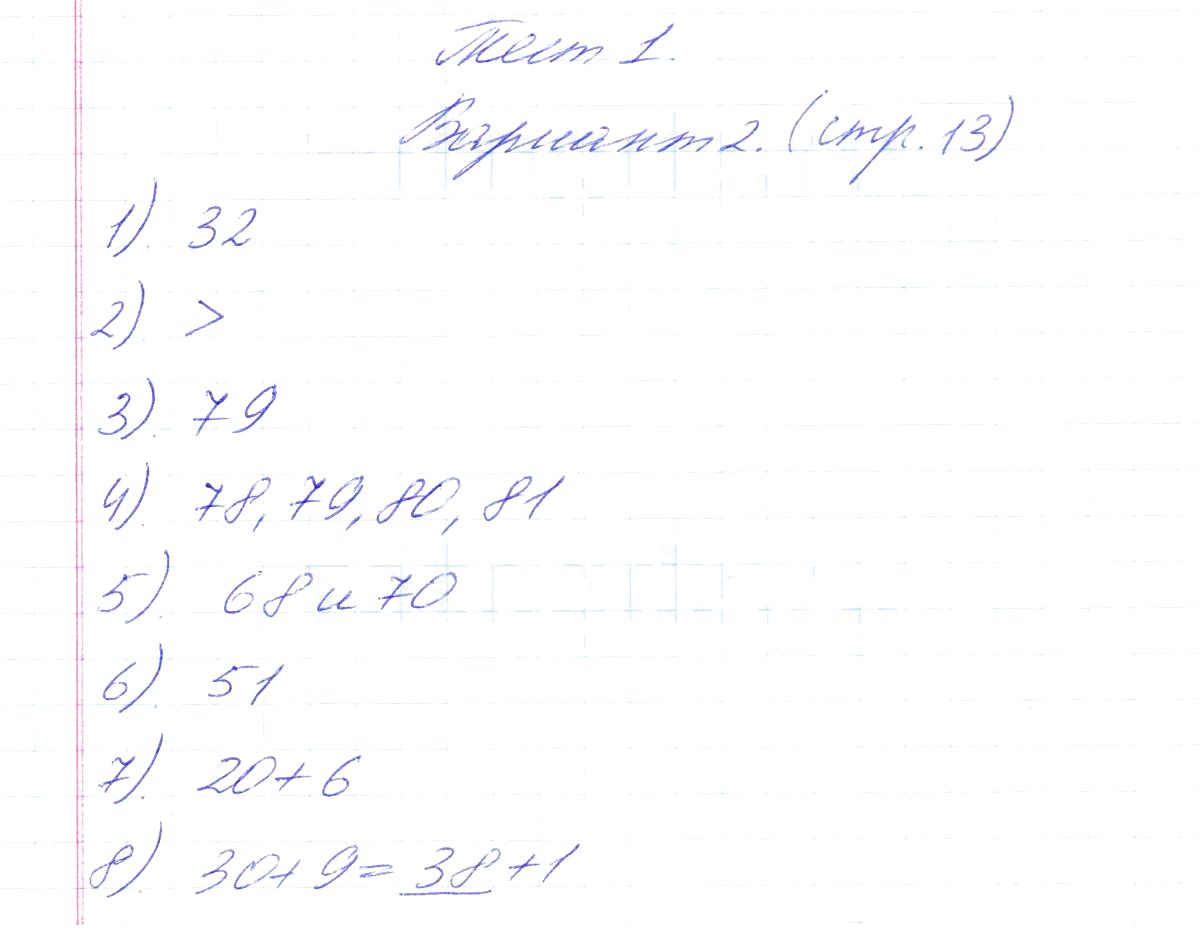 Тест 1.
Вариант 2. (стр. 13)
1). 32
2) >
3). 79
4). 78, 79, 80, 81
5). 68 и 70
6). 51
7). 20+6
8). 30+9=38+1